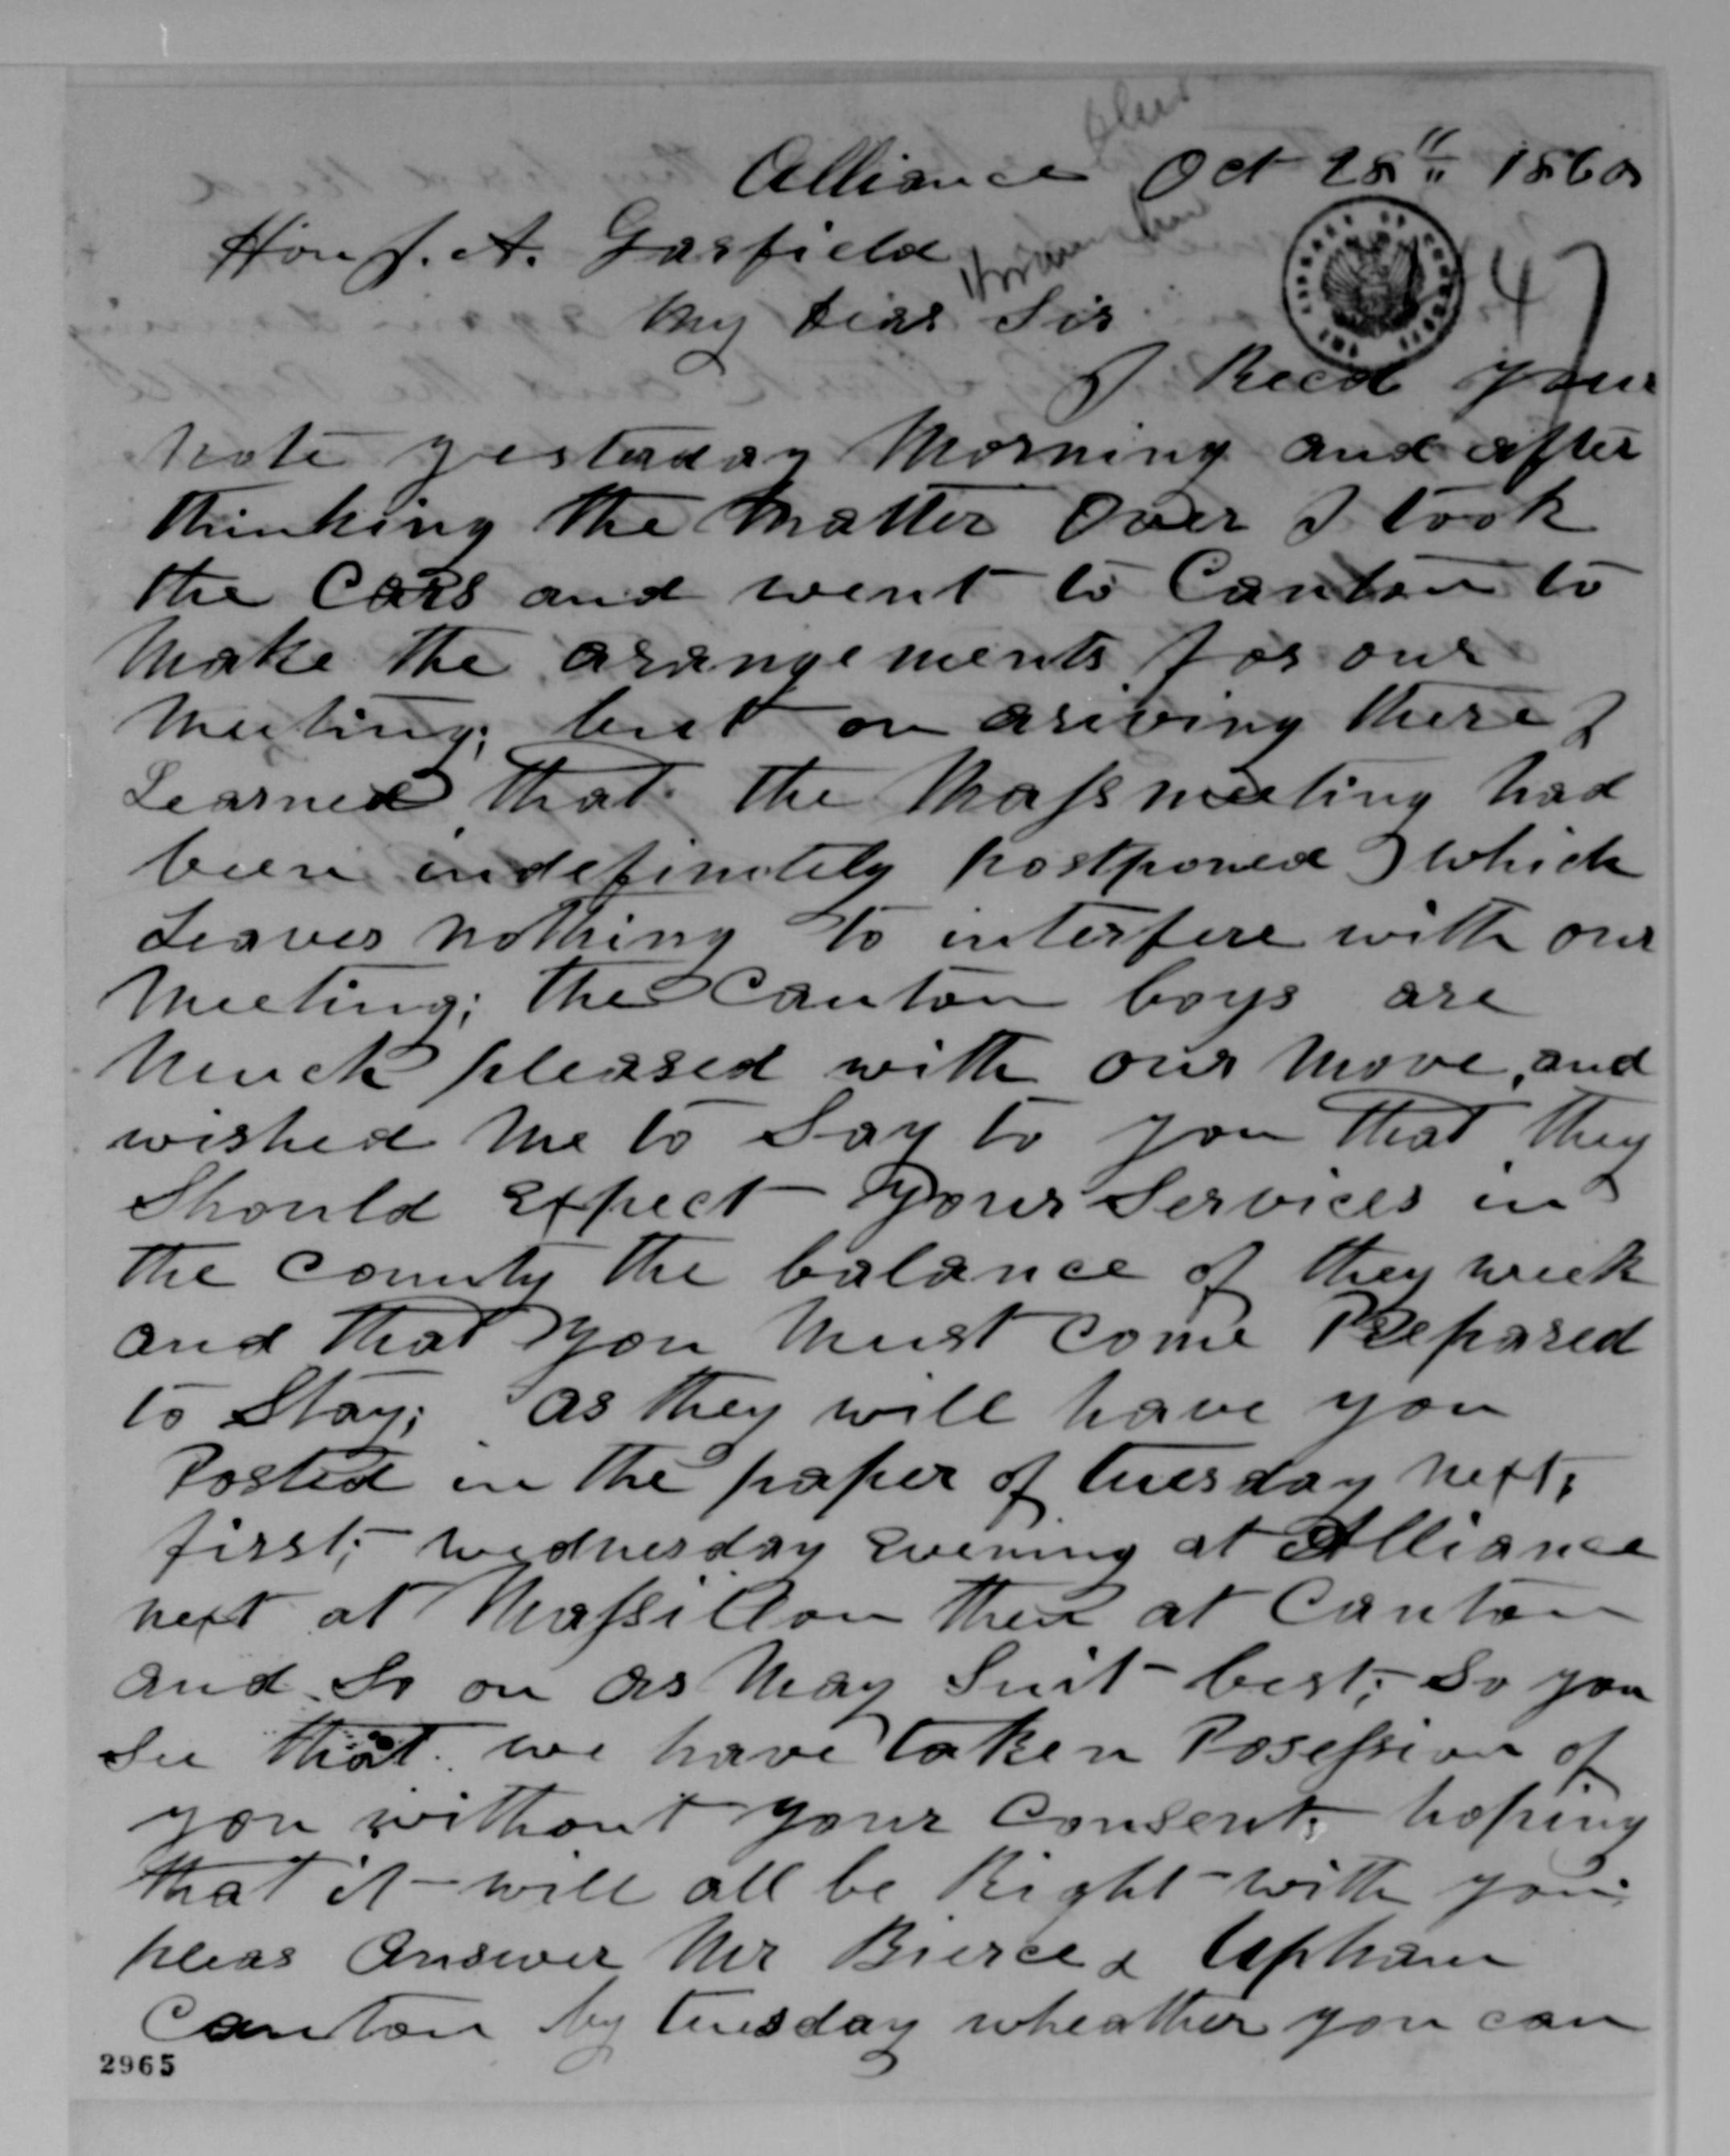 Ohio
Alliance Oct 28th 1860
Hon J. A. Garfield
My Dear Sir
THE LIBRARY OF CONGRESS
47
I Recd your
note yesterday Morning and after
thinking the Matter Over I took
the Cars and went to Canton to
Make the arangements for our
Meeting; but on ariving there I
Learned that the Maſsmeeting had
been indefinitely postponed which
Leaves Nothing to interfere with our
Meeting; the Canton boys are
Much pleased with our Move, and
wished Me to Say to you that they
Should Expect Your Services in
the County the balance of they week
and that You Must Come Prepared
to Stay; as they will have you
Posted in the paper of tuesday next;
first; wednesday Evening at Alliance
next at Maſsillon then at Canton
and So on as May Suit best; So you
See that we have taken Poseſsion of
you without your Consent; hoping
that it will all be Right with you;
pleas Answer Mr Bierce & Upham
Canton by tuesday wheather you can
2965